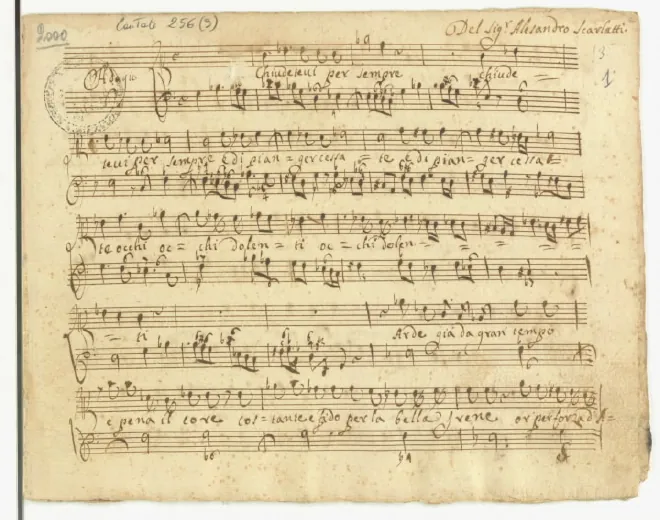 2000 Cantate 256 (3) Del Sig.r Alesandro Scarlatti.
13
1
Adagio Chiudetevi per sempre chiude =
tevi per sempre e di pian = ger cessa = te e di pian = ger cessa =
te occhi oc = chi dolen = ti oc = chi dolen = = = = =
= ti Arde già da gran tempo
e pena il core cos = tante e fido per la bella Irene or per forza d'A =